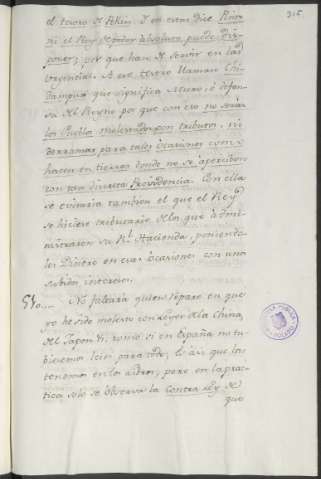 315
el tesoro de Pekin. Y en estas dice Rium
ni el Rey de poder absoluto puede dis-
poner; por que han de servir en las
urgencias. A este tesoro llaman Chi
que significa Muro, o defen-
sa del Reyno por que con eso no seran
los Pueblos molestados con tributos, ni
derramas para tales ocasiones como se
hacen en tierras donde no se aperciben
con tan discreta Providencia. Con ella
se evitaria tambien el que el Rey
se hiciese tributario de los que admi-
nistraron su Rl. Hacienda, poniendo-
les Dinero en esas ocasiones con una
subidos intereses.
No faltaria quien repare en que
yo he sido molesto con leyes de la China,
del Japon &c. como si en España no tu-
bieramos leies para todo; lo asi que las
tenemos en los libros; pero en la prac-
tica solo se observa la contra ley de
que